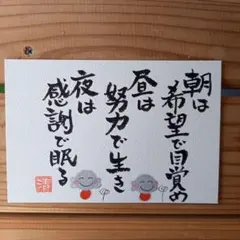 朝は
希望で目覚め
昼は
努力で生き
夜は
感謝で眠る
清